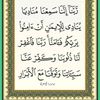 رَّبَّنَآ إِنَّنَا سَمِعْنَا مُنَادِيًا
يُنَادِى لِلْإِيمَٰنِ أَنْ ءَامِنُوا۟
بِرَبِّكُمْ فَـَٔامَنَّا رَبَّنَا فَٱغْفِرْ
لَنَا ذُنُوبَنَا وَكَفِّرْ عَنَّا
سَيِّـَٔاتِنَا وَتَوَفَّنَا مَعَ ٱلْأَبْرَارِ